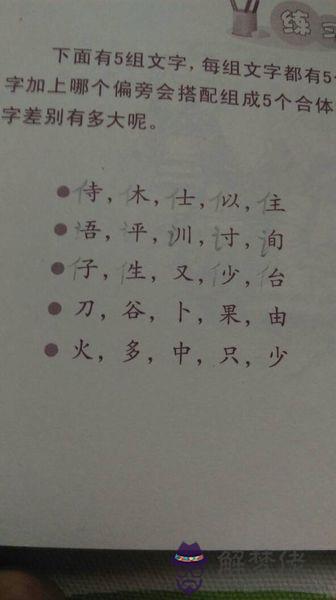 练习
下面有5组文字，每组文字都有5个
字加上哪个偏旁会搭配组成5个合体
字差别有多大呢。
●侍，休，仕，似，住
●语，评，训，讨，询
●仔，生，又，少，台
●刀，谷，卜，果，由
●火，多，中，只，少
解梦佬